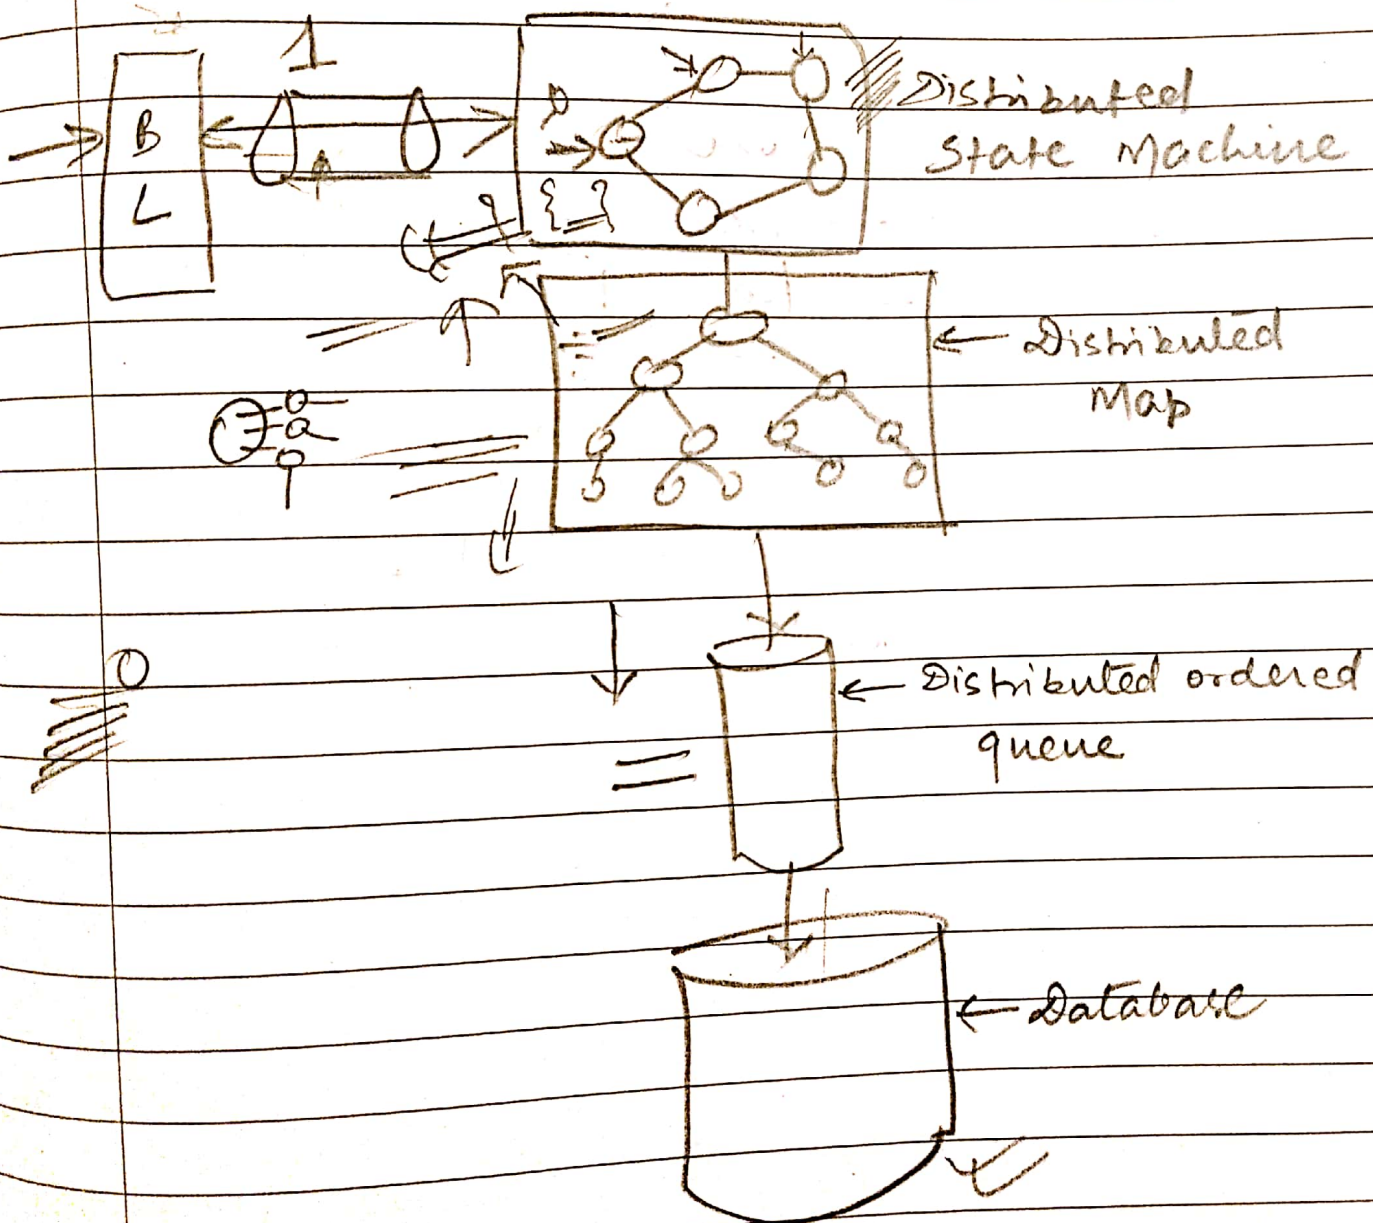 1
B
L
Distributed
State Machine
Distributed
Map
Distributed ordered
queue
Database